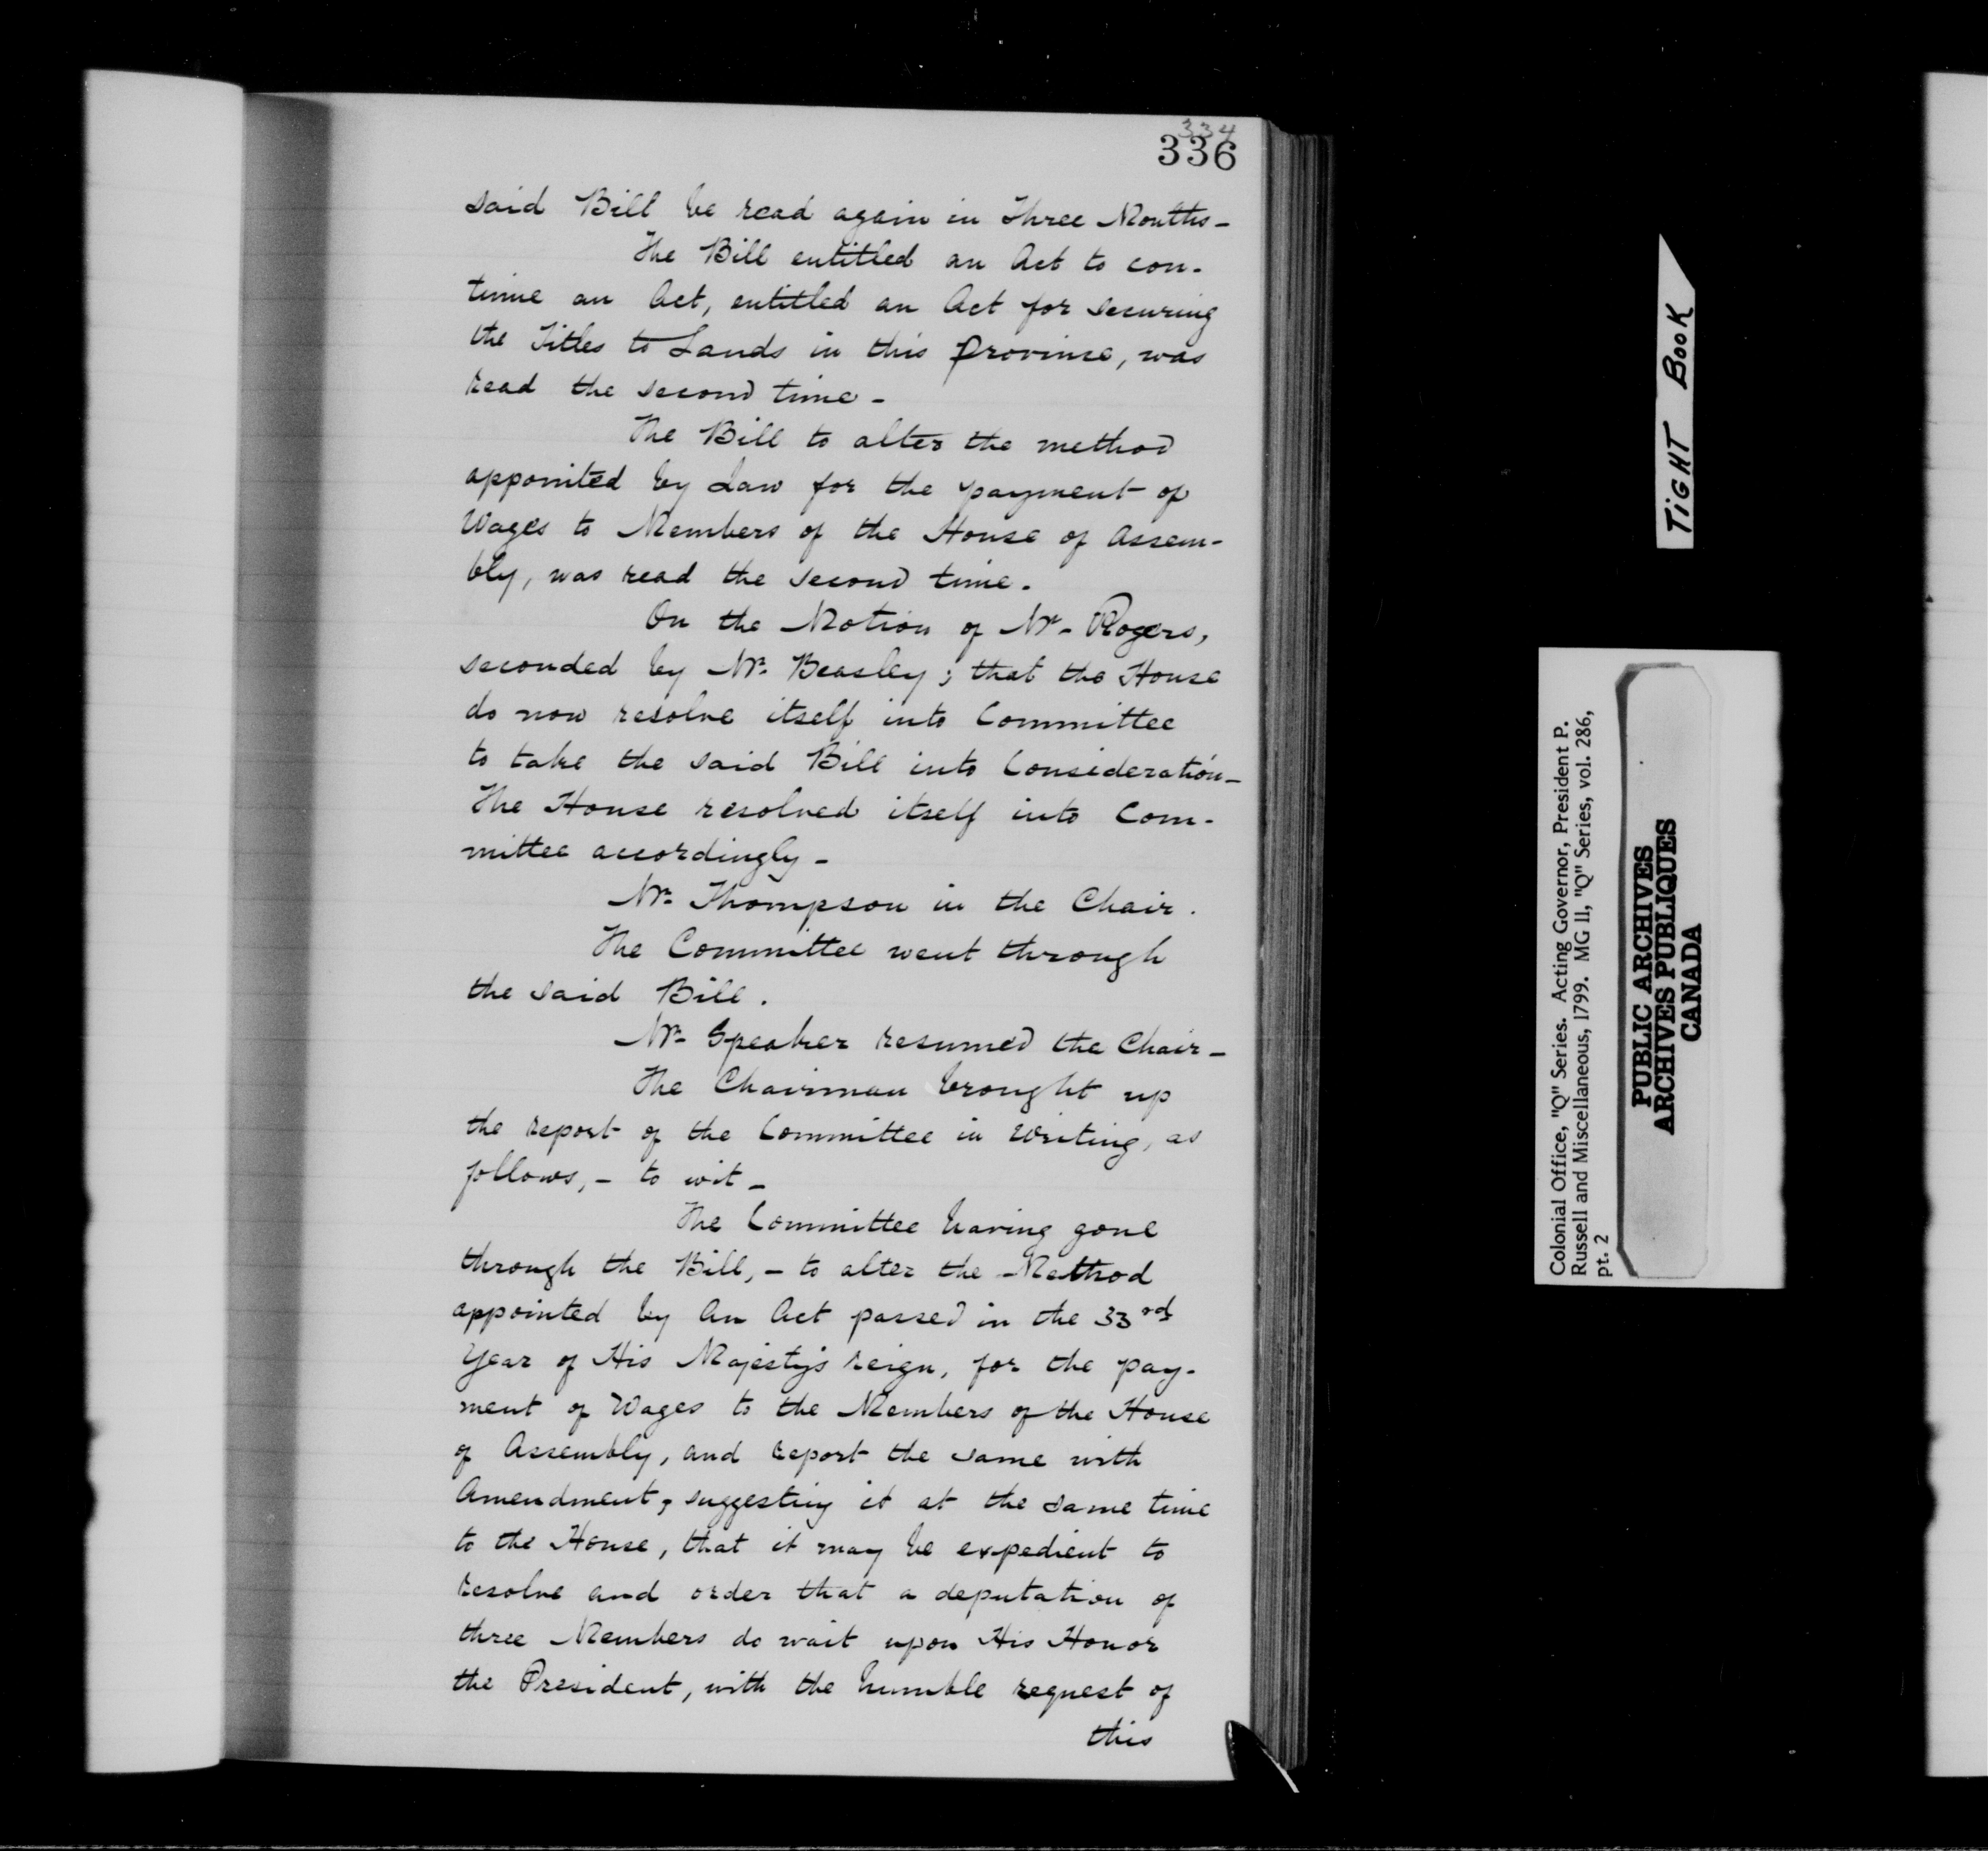 334
336
said Bill be read again in Three Months-
The Bill entitled an Act to con-
tinue an Act, entitled an Act for securing
the Titles to Lands in this province, was
read the second time-
The Bill to alter the method
appointed by Law for the payment of
Wages to Members of the House of Assem-
bly, was read the second time.
On the Motion of Mr. Rogers,
seconded by Mr. Beasley; that the House
do now resolve itself into Committee
to take the said Bill into Consideration-
The House resolved itself into Com-
mittee accordingly-
Mr. Thompson in the Chair.
The Committee went through
the said Bill.
Mr. Speaker resumed the Chair-
The Chairman brought up
the report of the Committee in Writing, as
follows,- to wit-
The Committee having gone
through the Bill,- to alter the Method
appointed by An Act passed in the 33rd
Year of His Majesty's reign, for the pay-
ment of Wages to the Members of the House
of Assembly, and report the same with
Amendment, suggesting it at the same time
to the House, that it may be expedient to
resolve and order that a deputation of
three Members do wait upon His Honor
the President, with the humble request of
this
TIGHT BOOK
Colonial Office, "Q" Series. Acting Governor, President P.
Russell and Miscellaneous, 1799. MG 11, "Q" Series, vol. 286,
pt. 2
PUBLIC ARCHIVES
ARCHIVES PUBLIQUES
CANADA